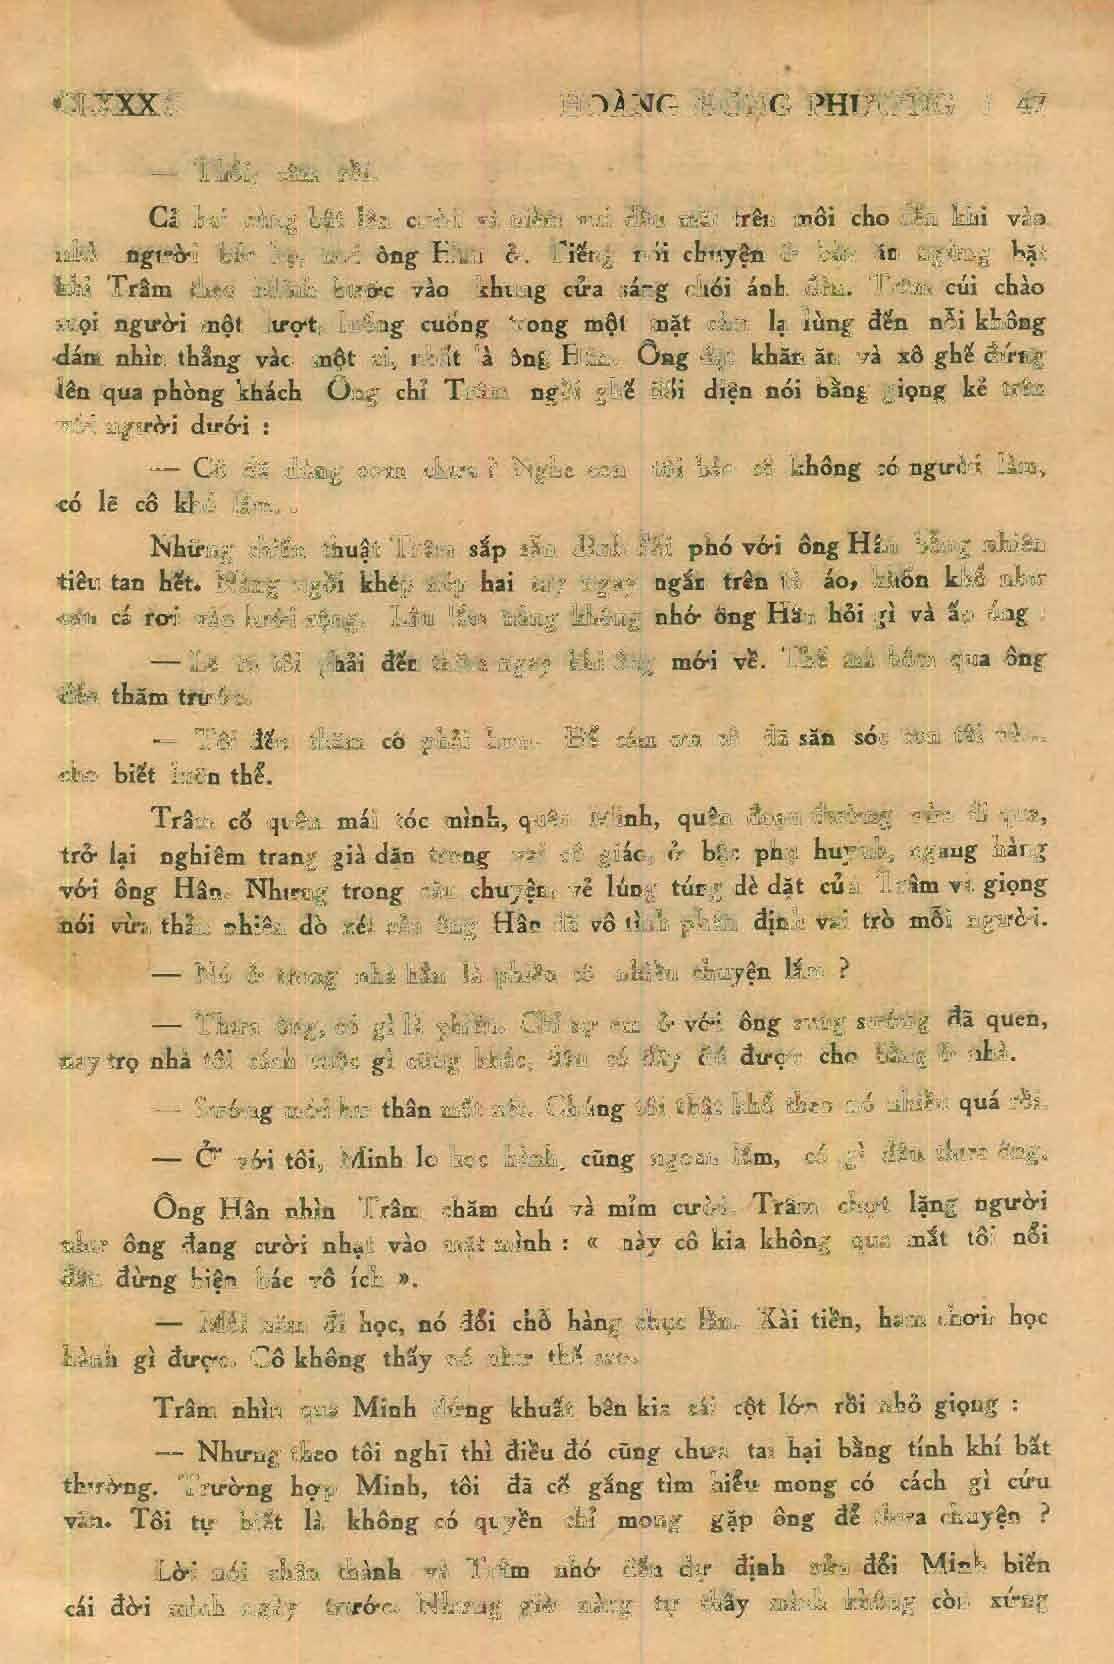 CLXXX HOÀNG ĐÔNG PHƯƠNG 47
— Thôi, câm rồi.
Cả hai cùng bật lên cười và niềm vui đậu mãi trên môi cho đến khi vào
nhà người bác họ, nơi ông Hân ở. Tiếng nói chuyện ở bàn ăn ngừng bặt
khi Trâm theo Minh bước vào khung cửa sáng chói ánh đèn. Trâm cúi chào
mọi người một lượt, luống cuống trong một mặt cảm lạ lùng đến nỗi không
dám nhìn thẳng vào một ai, nhất là ông Hân. Ông đặt khăn ăn và xô ghế đứng
lên qua phòng khách Ông chỉ Trâm ngồi ghế đối diện nói bằng giọng kẻ trên
với người dưới :
— Cô đã dùng cơm chưa ? Nghe con tôi bảo cô không có người làm,
có lẽ cô khổ lắm. .
Những chiến thuật Trâm sắp sẵn định đối phó với ông Hân bỗng nhiên
tiêu tan hết. Nàng ngồi khép nép hai tay ngay ngắn trên tà áo, khốn khổ như
con cá rơi vào lưới rộng. Lâu lắm nàng không nhớ ông Hân hỏi gì và ấp úng :
— Lẽ ra tôi phải đến thăm ngay khi ông mới về. Thế mà hôm qua ông
đến thăm trước.
— Tôi đến thăm có phải hơn. Để cám ơn cô đã săn sóc con tôi và...
cho biết luôn thể.
Trâm cố quên mái tóc mình, quên Minh, quên đoạn đường vừa đi qua,
trở lại nghiêm trang già dặn trong vai cô giáo, ở bậc phụ huynh, ngang hàng
với ông Hân. Nhưng trong câu chuyện, vẻ lúng túng dè dặt của Trâm và giọng
nói vừa thản nhiên dò xét của ông Hân đã vô tình phân định vai trò mỗi người.
— Nó ở trong nhà hẳn là phiền cô nhiều chuyện lắm ?
— Thưa ông, có gì là phiền. Chỉ sợ em ở với ông sung sướng đã quen,
nay trọ nhà tôi cách cuộc gì cũng khác, đâu có đầy đủ được cho bằng ở nhà.
— Sướng mới hư thân mất nết. Chúng tôi thật khổ theo nó nhiều quá rồi.
— Ở với tôi, Minh lo học hành, cũng ngoan lắm, có gì đâu thưa ông.
Ông Hân nhìn Trâm chăm chú và mỉm cười. Trâm chợt lặng người
như ông đang cười nhạt vào mặt mình : « này cô kia không qua mắt tôi nổi
đâu đừng biện bác vô ích ».
— Mỗi năm đi học, nó đổi chỗ hàng chục lần. Xài tiền, ham chơi, học
hành gì được. Cô không thấy nó như thế sao.
Trâm nhìn qua Minh đứng khuất bên kia cái cột lớn rồi nhỏ giọng :
— Nhưng theo tôi nghĩ thì điều đó cũng chưa tai hại bằng tính khí bất
thường. Trường hợp Minh, tôi đã cố gắng tìm hiểu mong có cách gì cứu
vãn. Tôi tự biết là không có quyền chỉ mong gặp ông để thưa chuyện ?
Lời nói chân thành và Trâm nhớ đến dự định sửa đổi Minh biến
cái đời mình ngày trước. Nhưng giờ nàng tự thấy mình không còn xứng